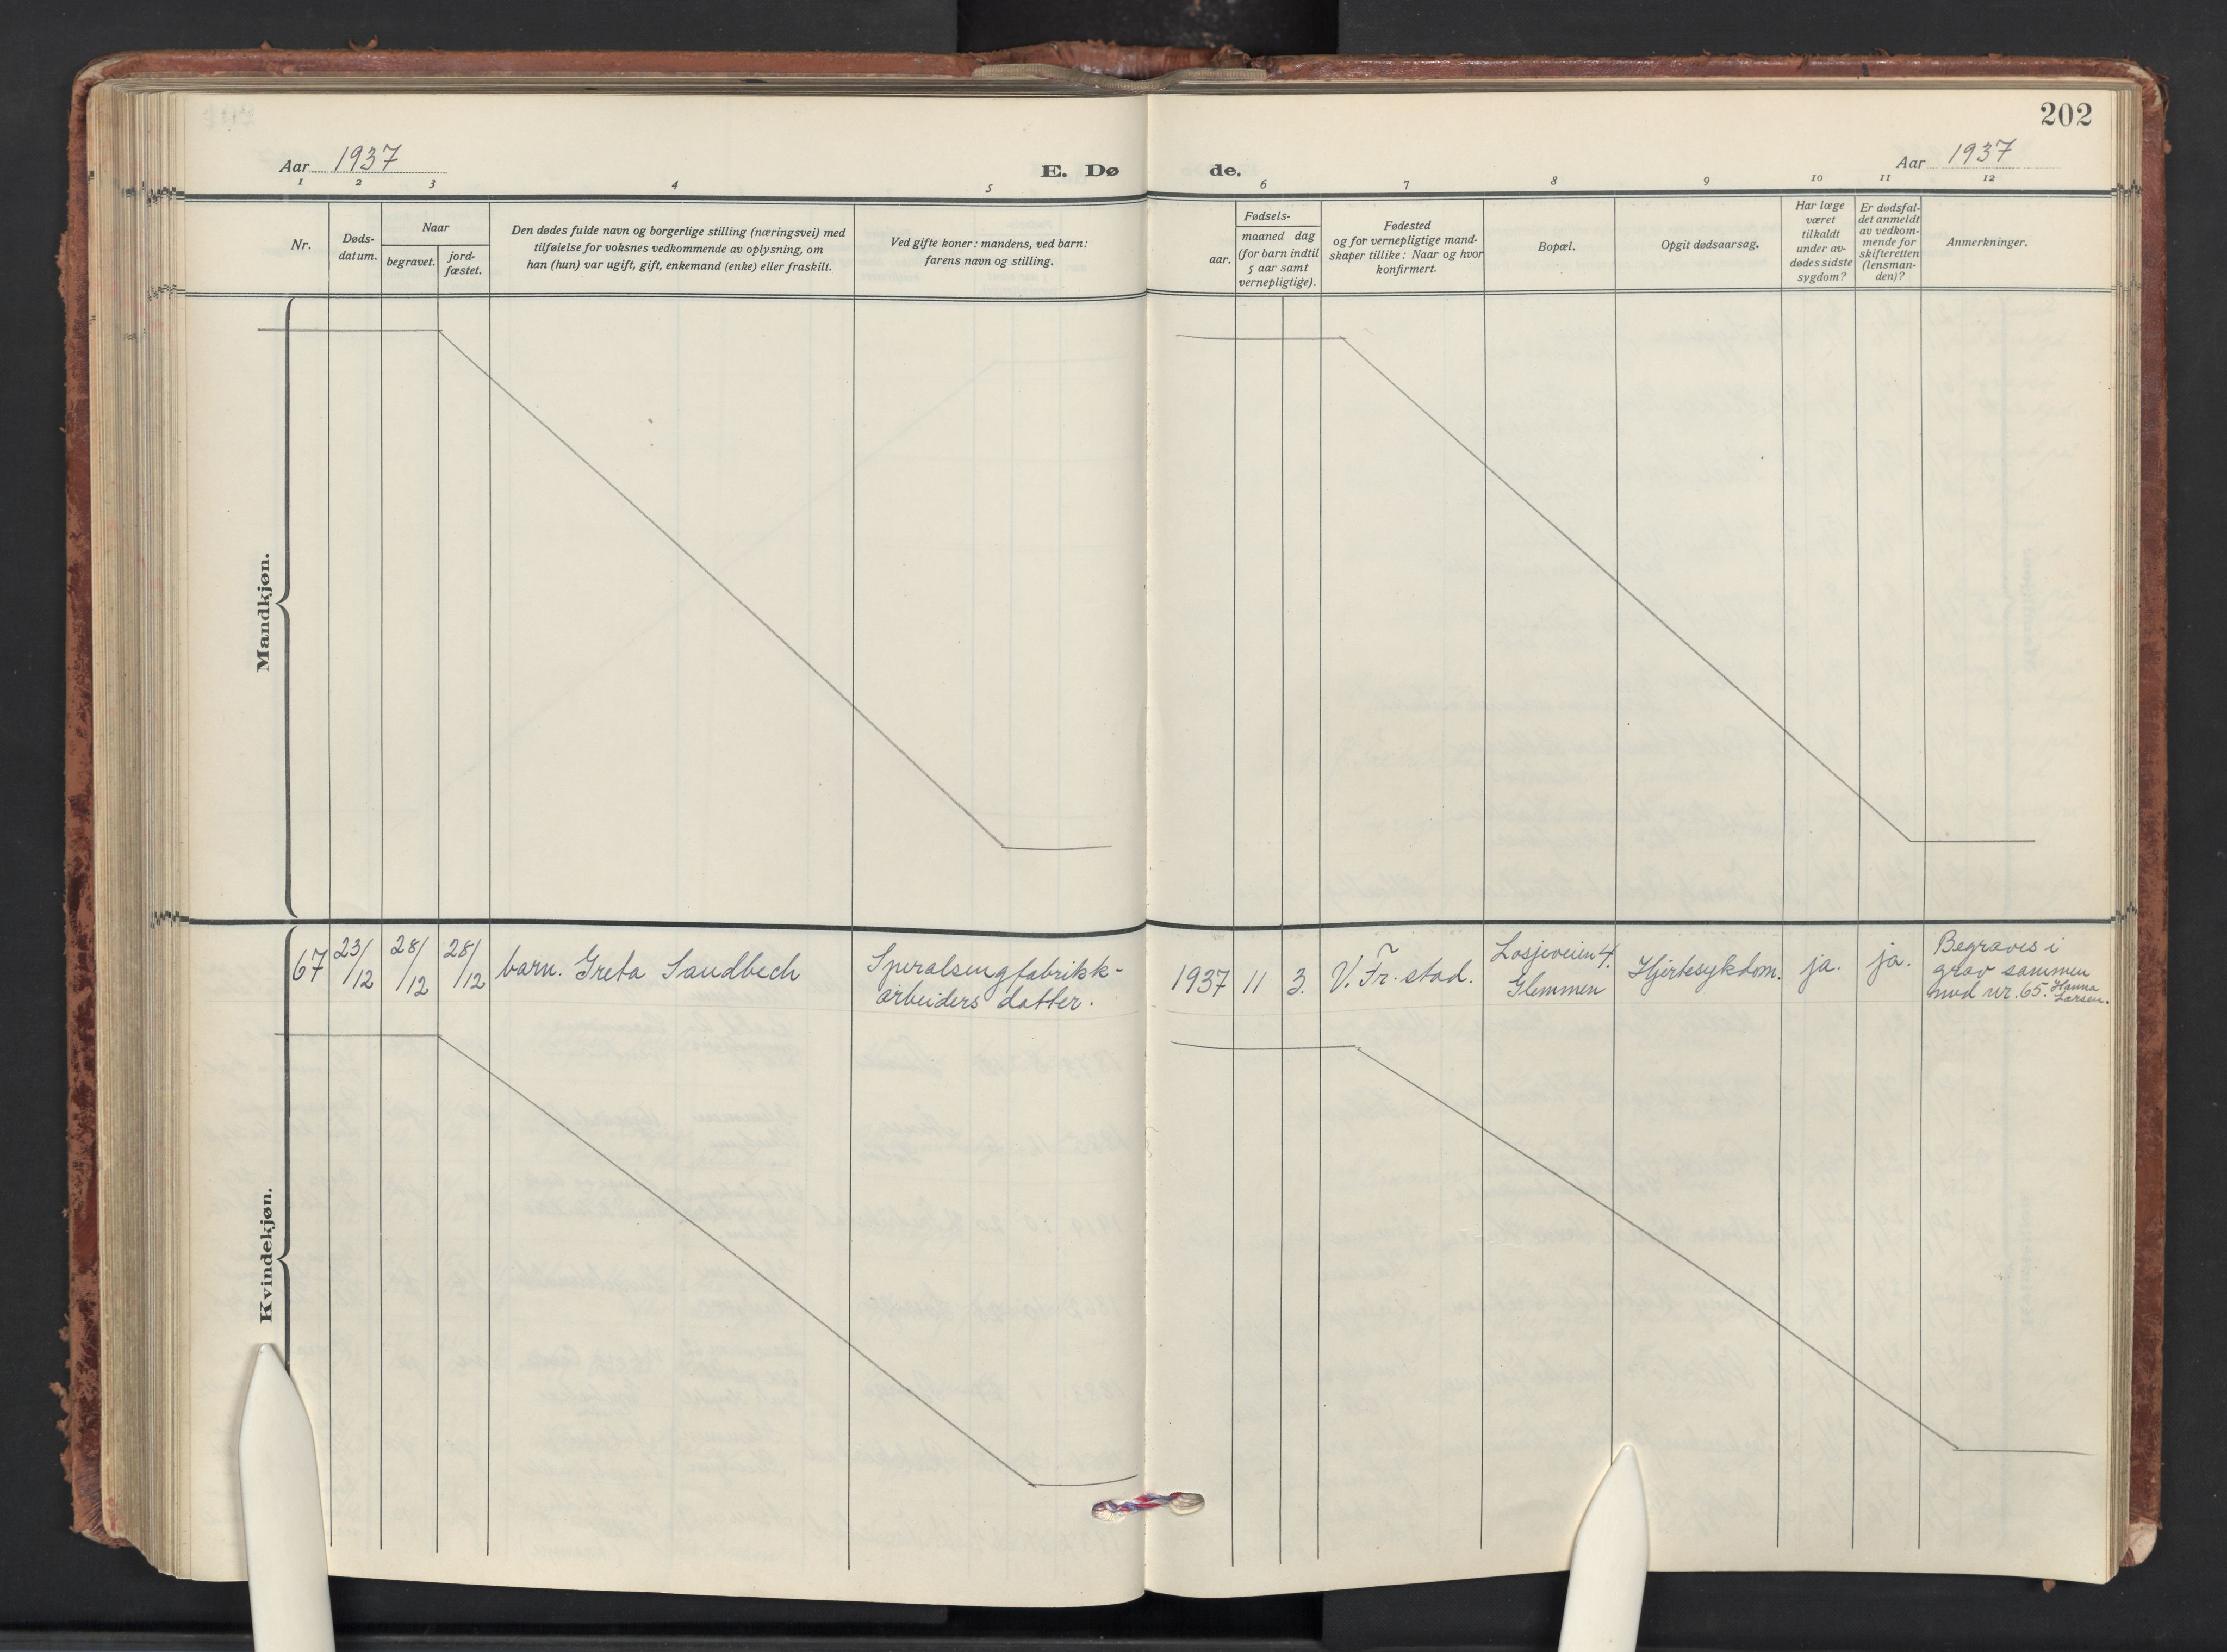 202
Aar 1937
E. Dø
de.
Aar 1937
1 2 3 4 5
6 7 8 9 10 11 12
Nr.
Døds-
datum.
Naar
begravet.
jord-
fæstet.
Den dødes fulde navn og borgerlige stilling (næringsvei) med
tilføielse for voksnes vedkommende av oplysning, om
han (hun) var ugift, gift, enkemand (enke) eller fraskilt.
Ved gifte koner: mandens, ved barn:
farens navn og stilling.
Fødsels-
aar.
maaned dag
(for barn indtil
5 aar samt
vernepligtige).
Fødested
og for vernepligtige mand-
skaper tillike: Naar og hvor
konfirmert.
Bopæl.
Opgit dødsaarsag.
Har læge
været
tilkaldt
under av-
dødes sidste
sygdom?
Er dødsfal-
det anmeldt
av vedkom-
mende for
skifteretten
(lensman-
den)?
Anmerkninger.
Mandkjøn.
67
23/12
28/12
28/12
barn. Greta Sandbech
Speralsengfabrikk-
arbeiders datter.
1937
11
3.
V. Fr. stad.
Losjeveien 4.
Glemmen
Hjertesykdom.
ja.
ja.
Begraves i
grav sammen
med nr. 65. Hanna
Larsen.
Kvindekjøn.